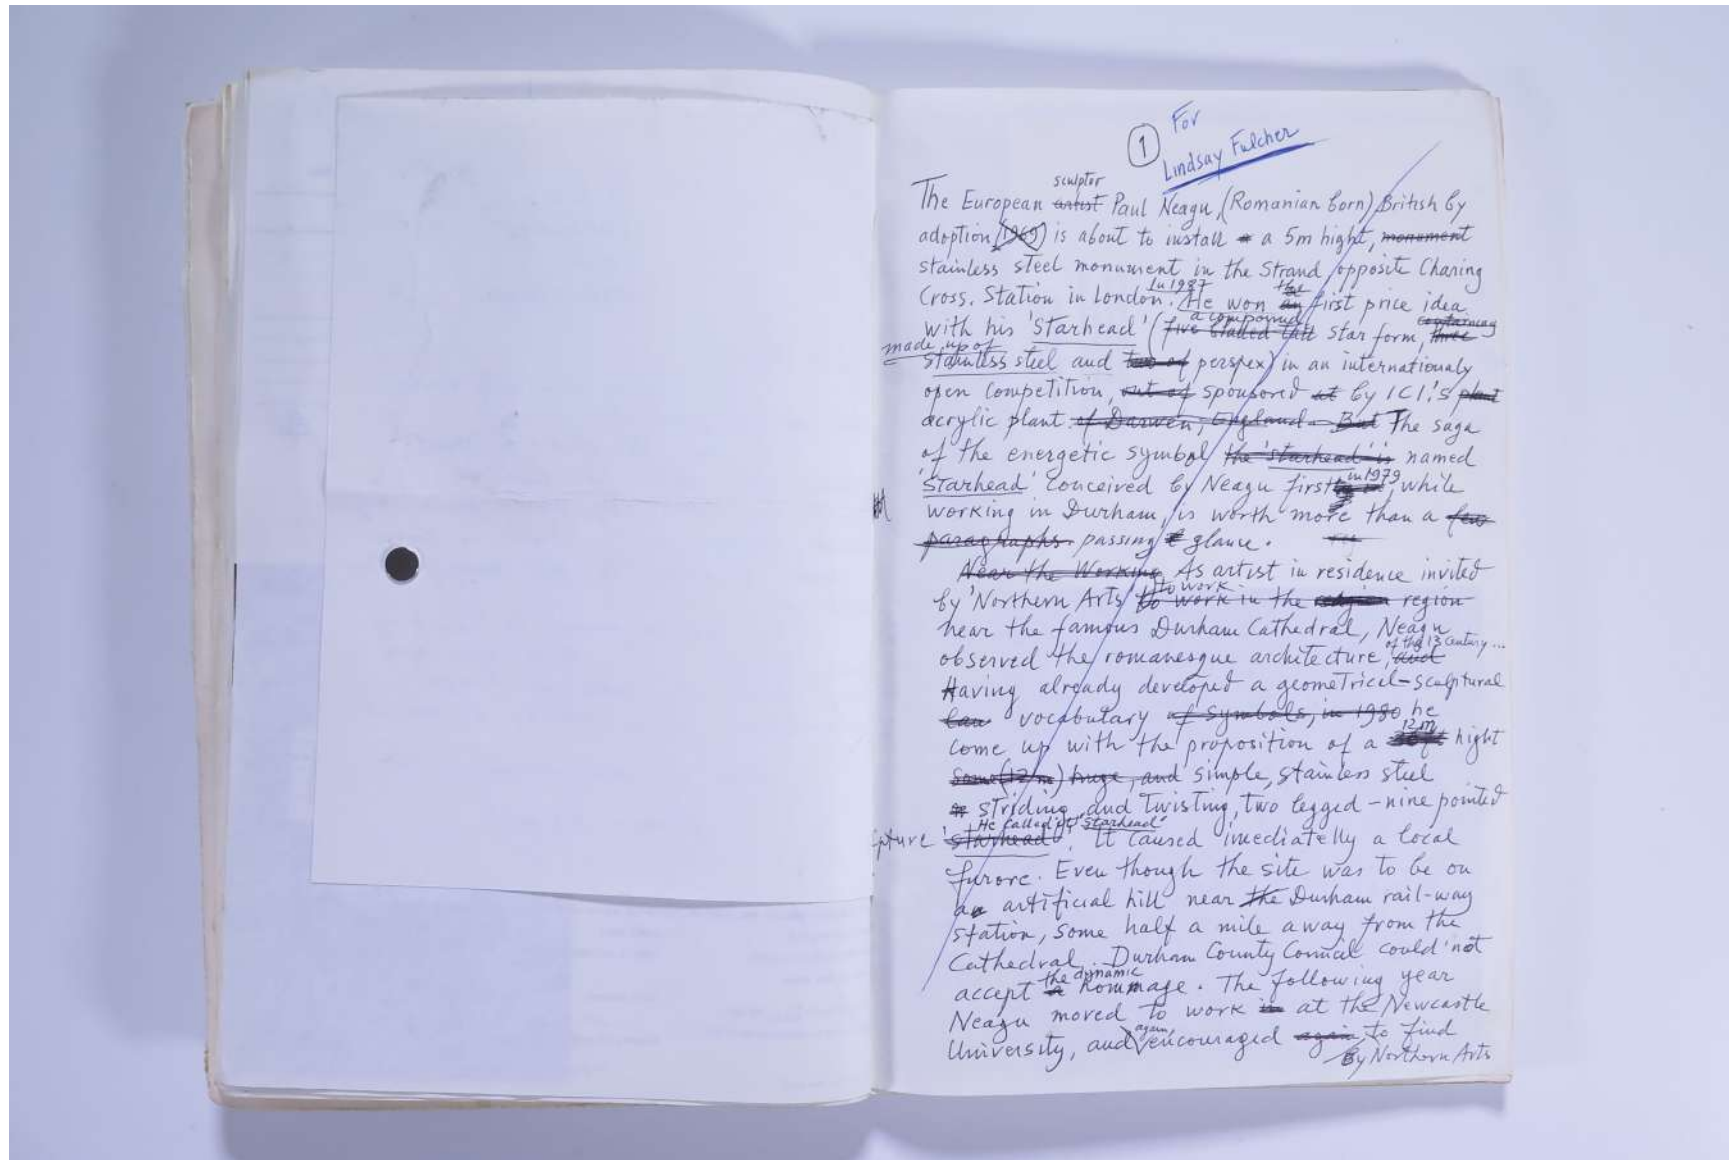 1
For
Lindsay Fulcher
sculptor
The European artist Paul Neagu, (Romanian born) British by
adoption (1969) is about to install a a 5m hight, monument
stainless steel monument in the Strand opposite Charing
Cross. Station in London. In 1987 He won an the first price idea
with his 'Starhead' (five bladed tall a compound star form, three containing
made up of
stainless steel and two of perspex) in an internationaly
open competition, out of sponsored at by ICI.'s plant
acrylic plant. of Darwen, England. But The saga
of the energetic symbol the 'starhead' is named
'Starhead' conceived by Neagu first in 1979, while
working in Durham, is worth more than a few
paragraphs. passing glance.
Near the Working As artist in residence invited
by 'Northern Arts' to work to work in the region
near the famous Durham Cathedral, Neagu
observed the romanesque architecture, and of the 13 century...
Having already developed a geometrical-sculptural
lan vocabulary of symbols, in 1980 he
come up with the proposition of a 12m hight
some (12m) huge, and simple, stainless steel
striding and twisting, two legged - nine pointed
pture 'starhead'. He called it 'Starhead' It caused imediatelly a local
furore. Even though the site was to be on
an artificial hill near the Durham rail-way
station, some half a mile away from the
Cathedral. Durham County Council could not
accept a the dynamic hommage. The following year
Neagu moved to work in at the Newcastle
University, and again, encouraged again to find
By Northern Arts